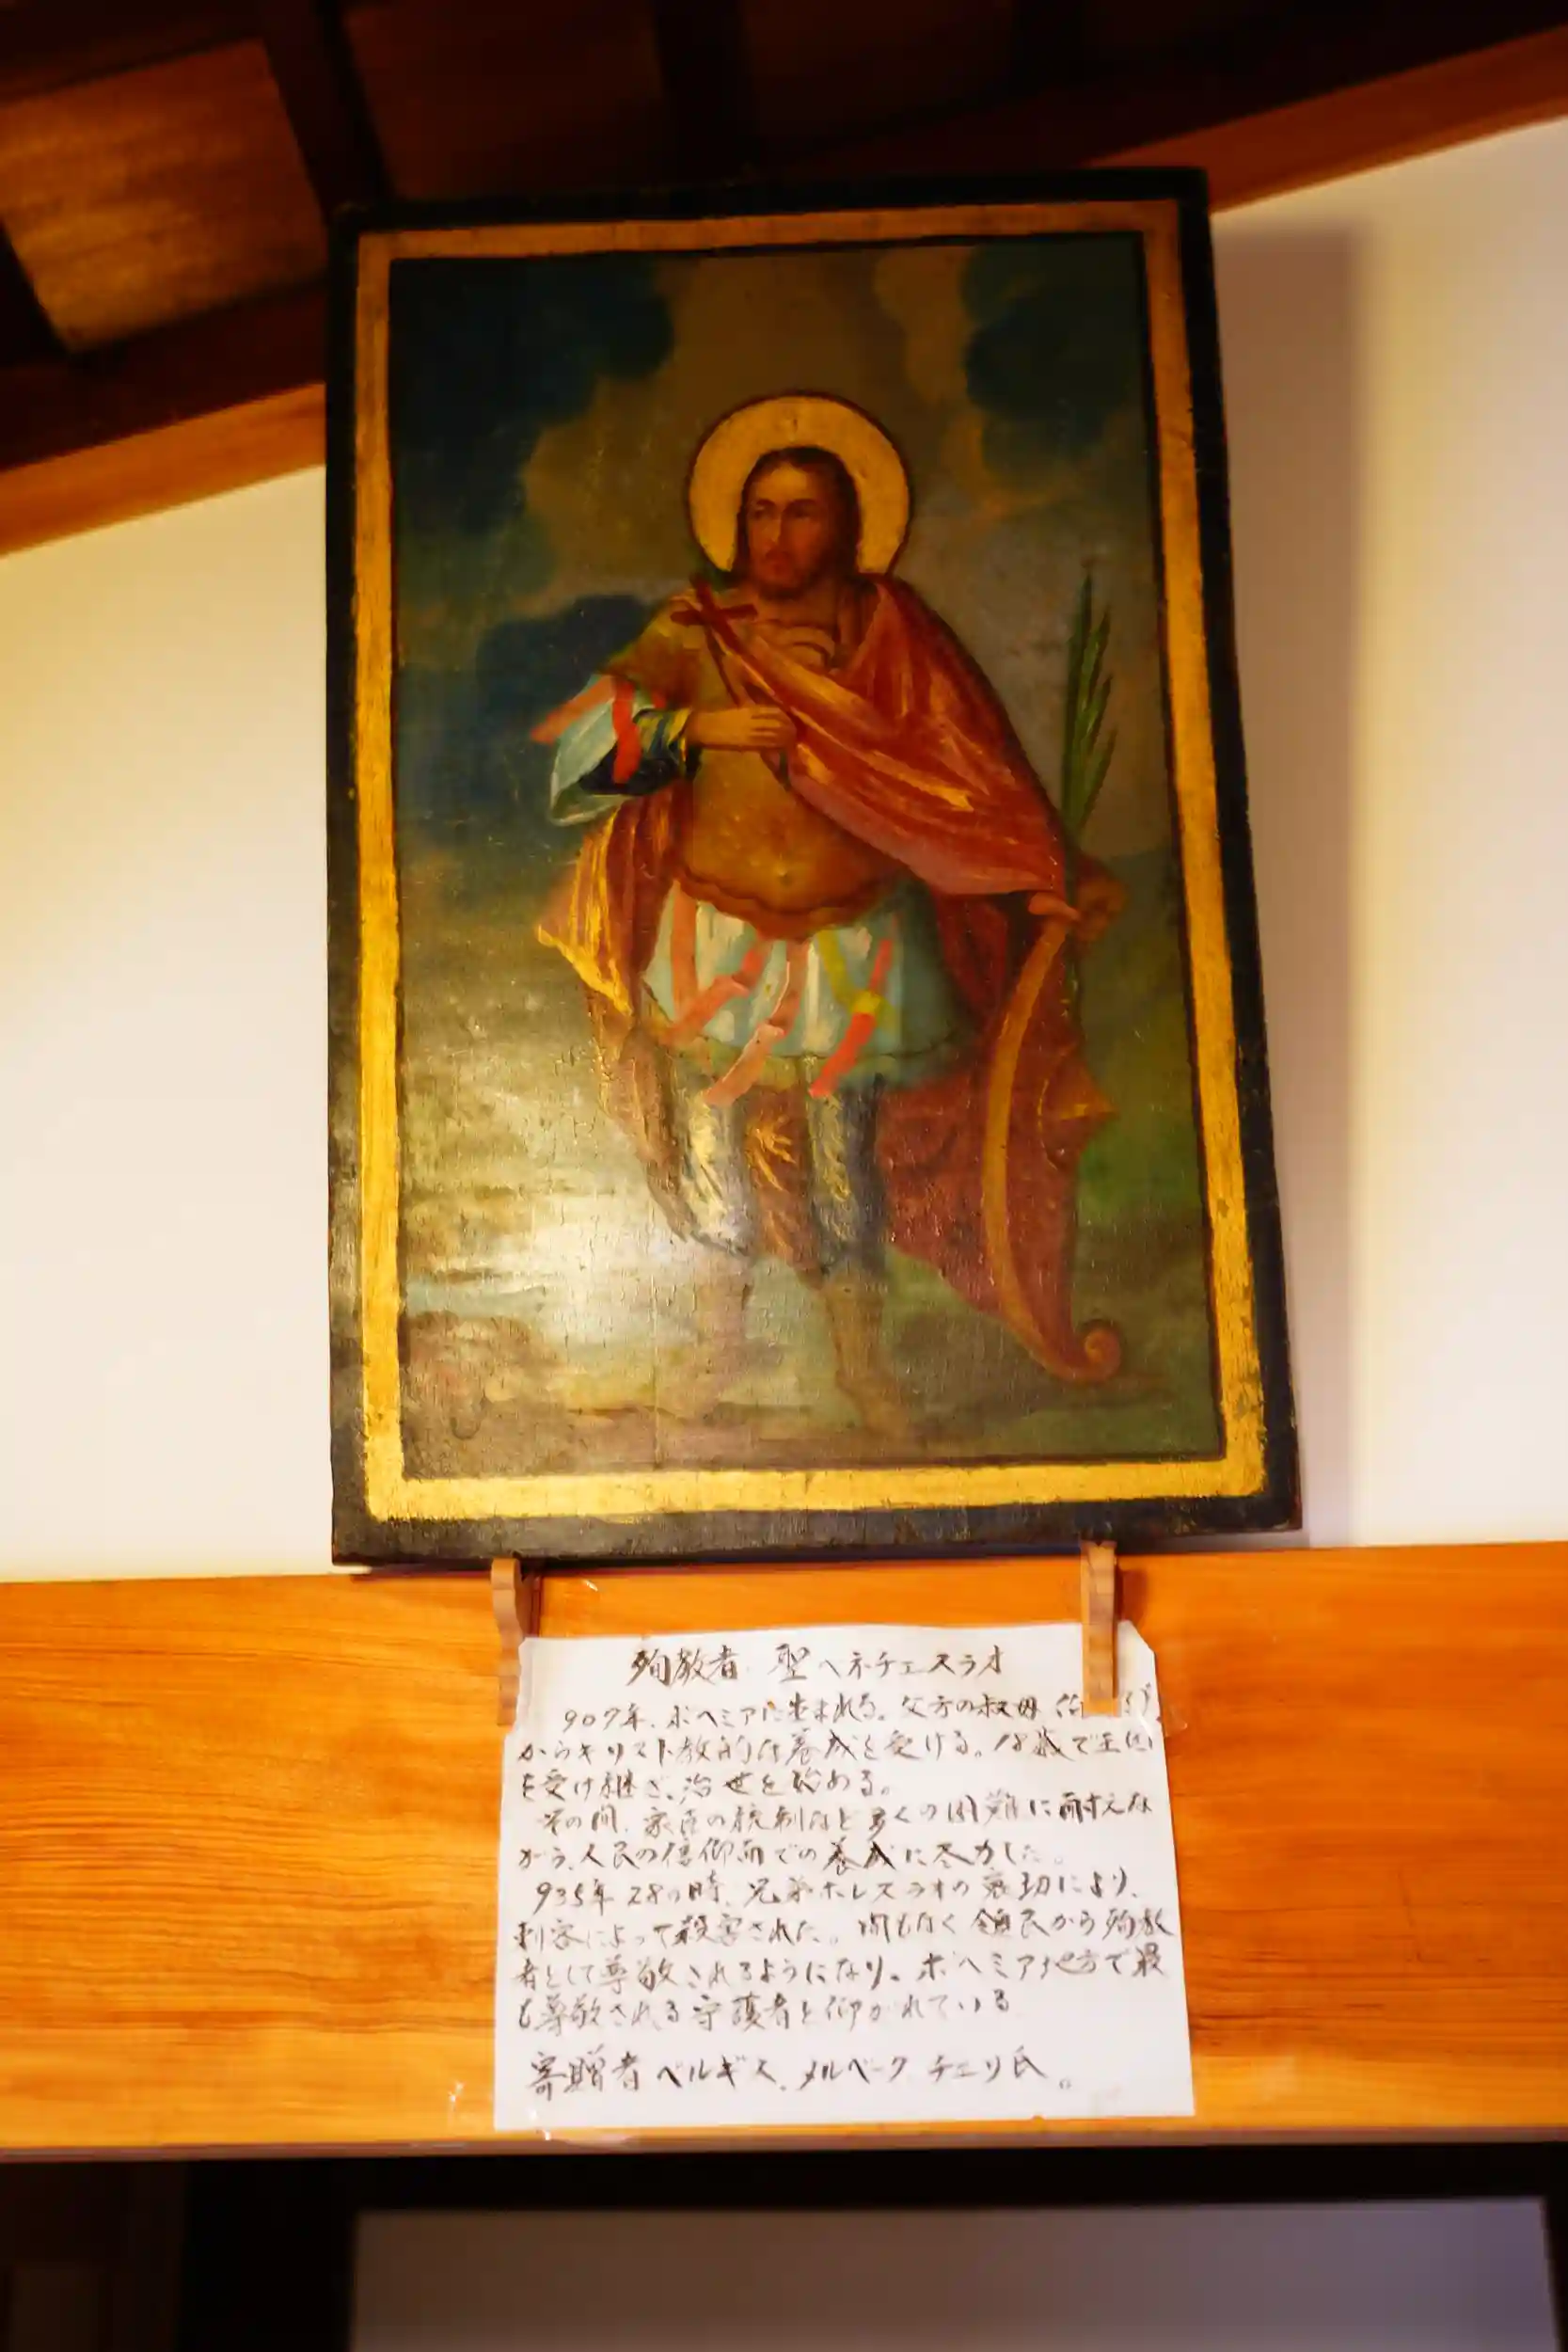 殉教者 聖ヘネチェスラオ
907年、ボヘミアに生まれる。父方の叔母
からキリスト教的な養成を受ける。18歳で王位
を受け継ぎ、治世を始める。
その間、家臣の統制など多くの困難に耐えな
がら、人民の信仰面での養成に尽力した。
935年 28の時、兄弟ボレスラオの裏切により、
刺客によって殺害された。間もなく領民から殉教
者として尊敬されるようになり。ボヘミア地方で最
も尊敬される守護者と仰がれている
寄贈者 ベルギス、メルベーク チェリ氏。